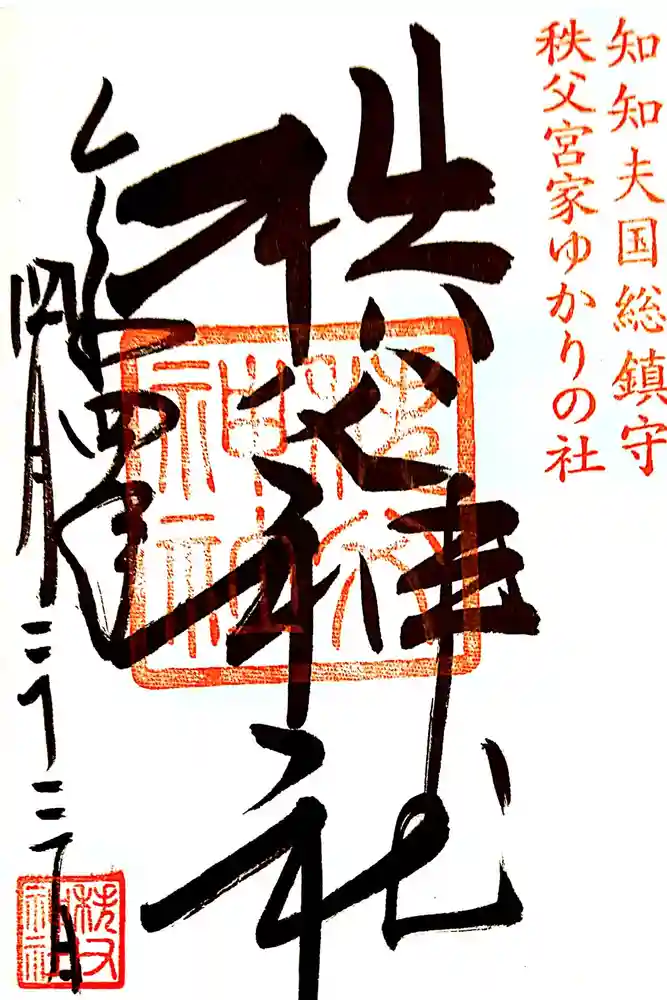 知知夫国総鎮守
秩父宮家ゆかりの社
秩父神社
令和四年
四月三十二日
秩父神社
秩父神社